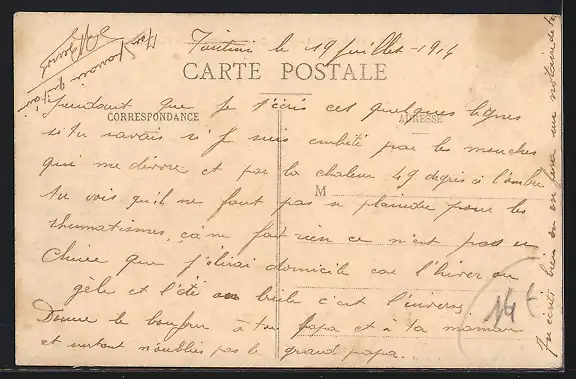 le 19 juillet - 1914
CARTE POSTALE
Pendant que je t'écris ces quelques lignes
CORRESPONDANCE
ADRESSE
si tu savais si je suis embêté par les mouches
qui me dévore et par la chaleur 49 degrés à l'ombre
M
tu vois qu'il ne faut pas se plaindre pour les
rhumatismes, ça ne fait rien ce n'est pas en
Chine que j'élirai domicile car l'hiver on
gèle et l'été on brûle c'est l'envers
Donne le bonjour à ton papa et à ta maman
et surtout n'oublies pas le grand papa.
14 f
J'écrits bien on en fera un notaire de toi